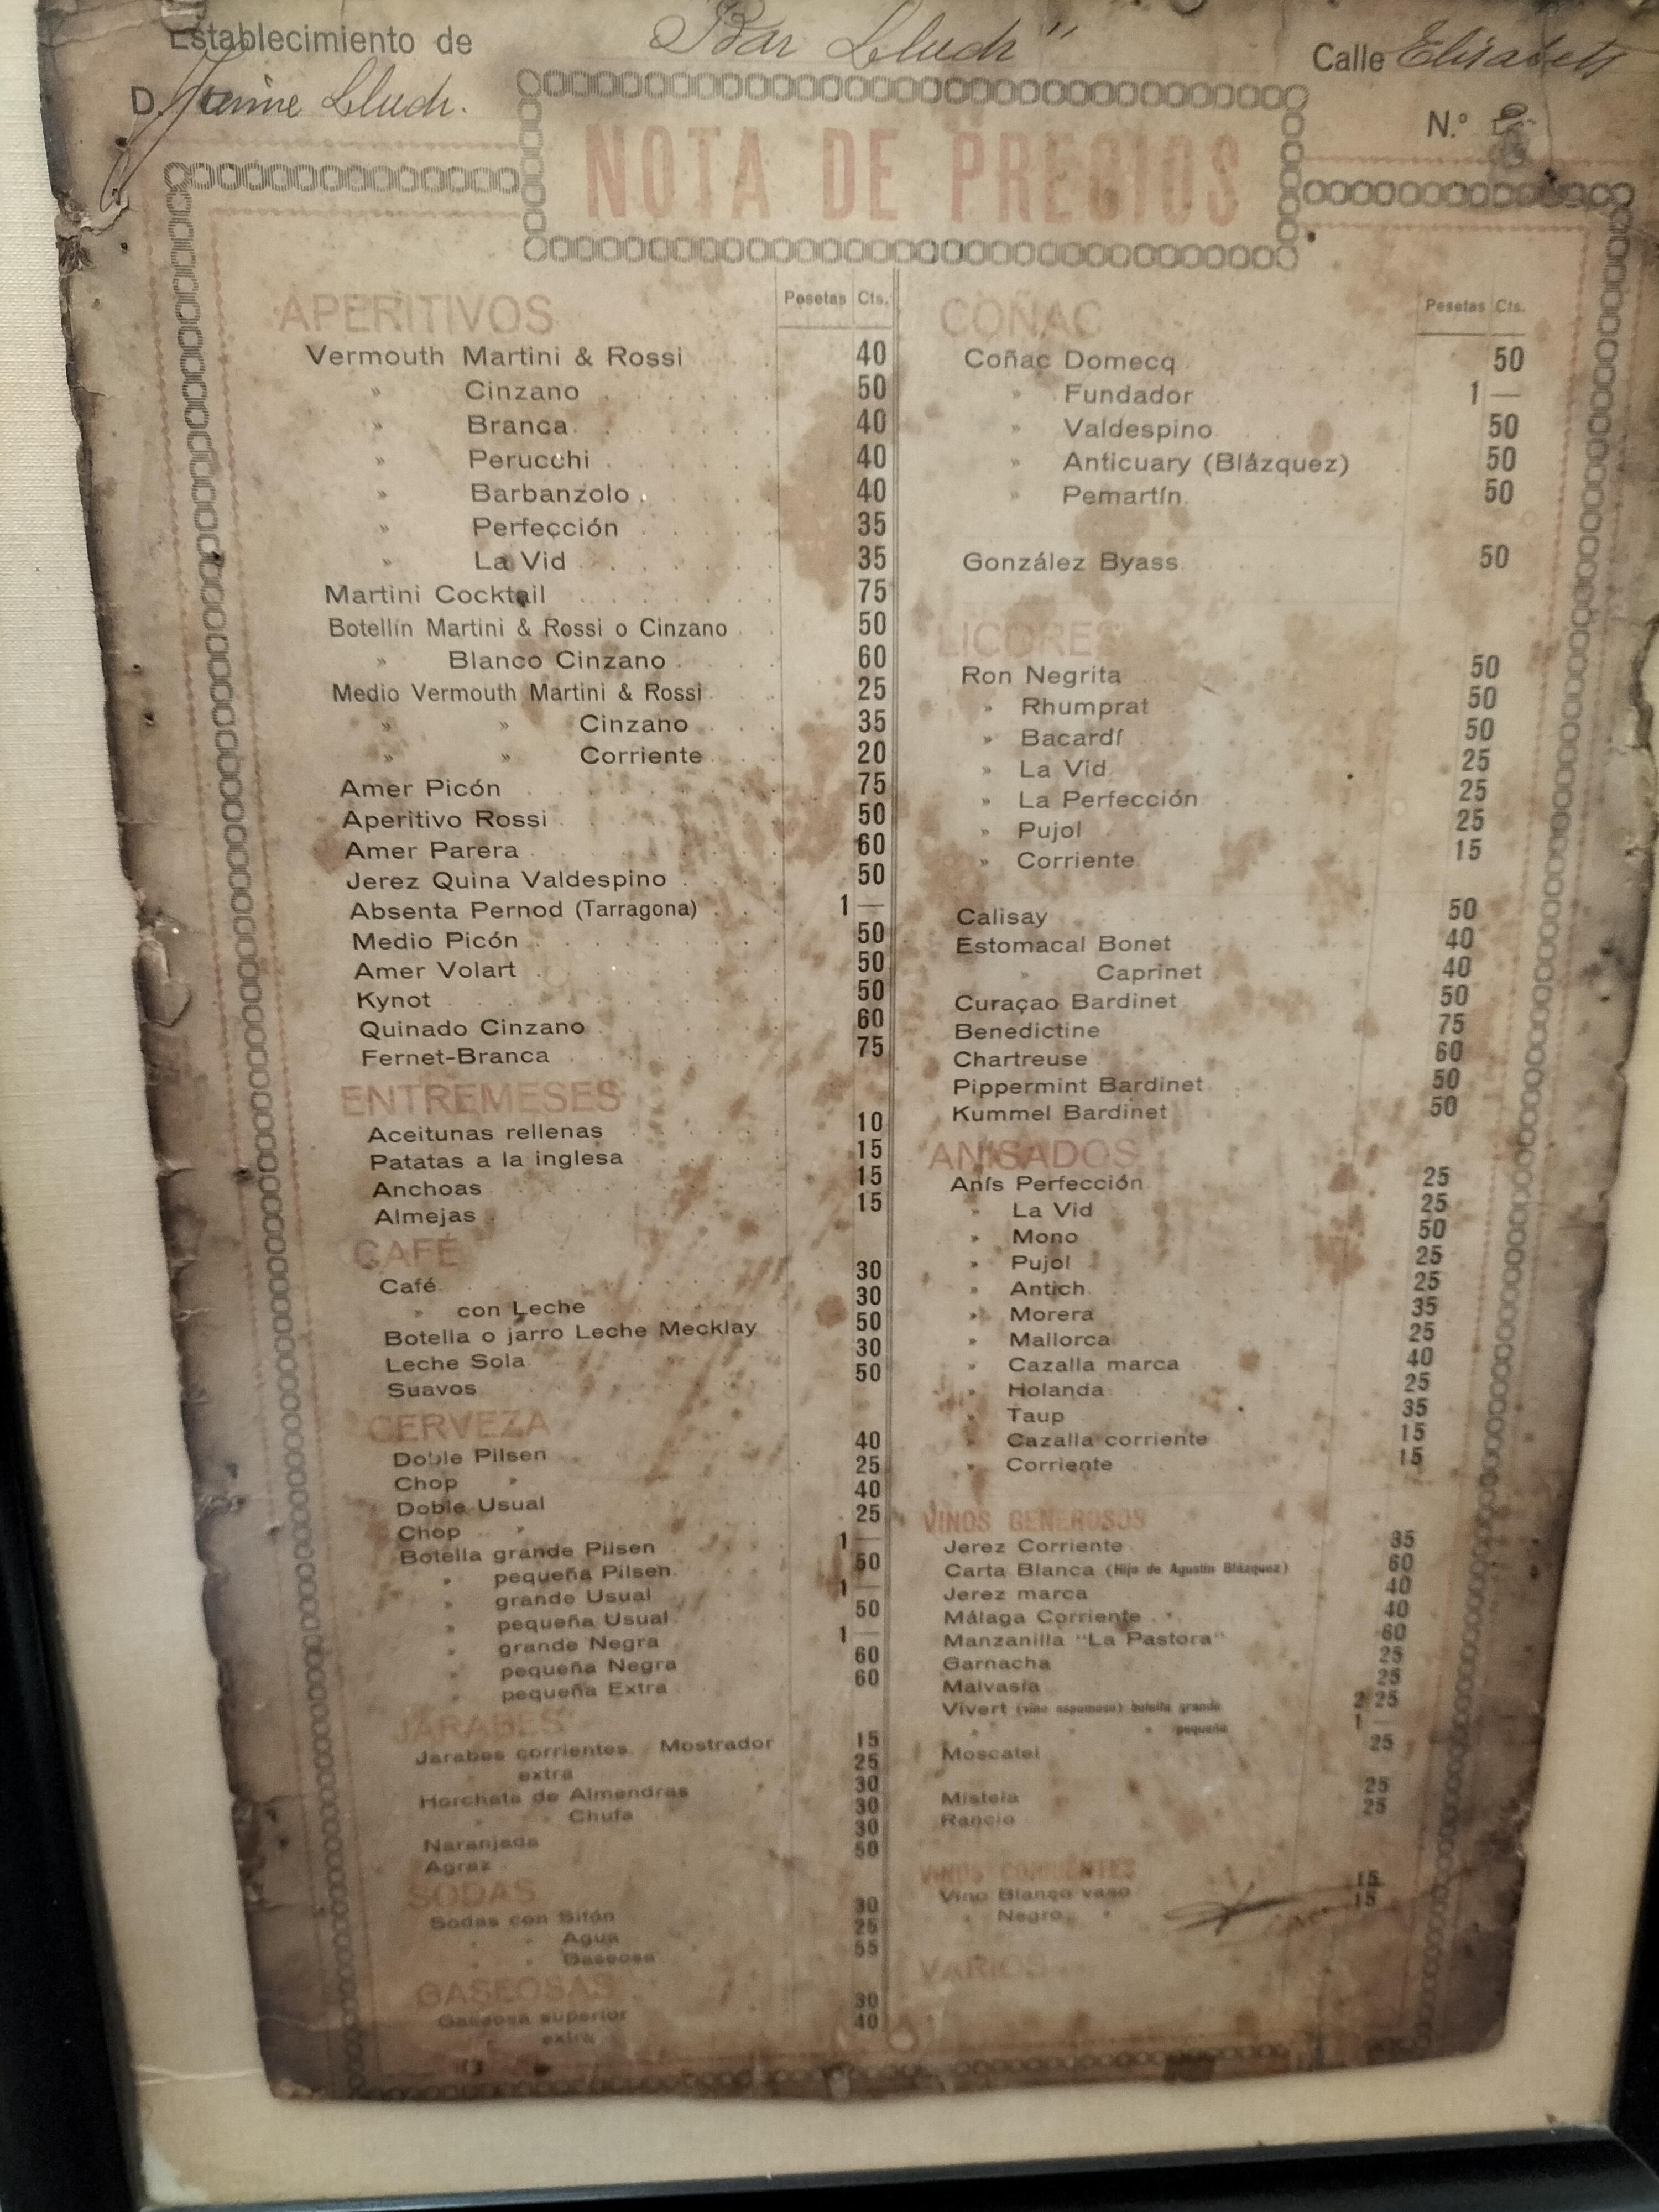 Establecimiento de
"Bar Lluch"
Calle Elisabets
D. Jaime Lluch.
N.º
NOTA DE PRECIOS
Pesetas Cts.
APERITIVOS
Vermouth Martini & Rossi 40
» Cinzano 50
» Branca 40
» Perucchi 40
» Barbanzolo 40
» Perfección 35
» La Vid 35
Martini Cocktail 75
Botellín Martini & Rossi o Cinzano 50
» Blanco Cinzano 60
Medio Vermouth Martini & Rossi 25
» » Cinzano 35
» » Corriente 20
Amer Picón 75
Aperitivo Rossi 50
Amer Parera 60
Jerez Quina Valdespino 50
Absenta Pernod (Tarragona) 1 —
Medio Picón 50
Amer Volart 50
Kynot 50
Quinado Cinzano 60
Fernet-Branca 75
ENTREMESES
Aceitunas rellenas 10
Patatas a la inglesa 15
Anchoas 15
Almejas 15
CAFÉ
Café 30
» con Leche 30
Botella o jarro Leche Mecklay 50
Leche Sola 30
Suavos 50
CERVEZA
Doble Pilsen 40
Chop » 25
Doble Usual 40
Chop » 25
Botella grande Pilsen 1 —
» pequeña Pilsen 50
» grande Usual 1 —
» pequeña Usual 50
» grande Negra 1 —
» pequeña Negra 60
» pequeña Extra 60
JARABES
Jarabes corrientes Mostrador 15
» extra 25
Horchata de Almendras 30
» » Chufa 30
Naranjada 30
Agraz 50
SODAS
Sodas con Sifón 30
» » Agua 25
» » Gaseosa 55
GASEOSAS
Gaseosa superior 30
» extra 40
Pesetas Cts.
COÑAC
Coñac Domecq 50
» Fundador 1 —
» Valdespino 50
» Anticuary (Blázquez) 50
» Pemartín 50
González Byass 50
LICORES
Ron Negrita 50
» Rhumprat 50
» Bacardí 50
» La Vid 25
» La Perfección 25
» Pujol 25
» Corriente 15
Calisay 50
Estomacal Bonet 40
» Caprinet 40
Curaçao Bardinet 50
Benedictine 75
Chartreuse 60
Pippermint Bardinet 50
Kummel Bardinet 50
ANISADOS
Anís Perfección 25
» La Vid 25
» Mono 50
» Pujol 25
» Antich 25
» Morera 35
» Mallorca 25
» Cazalla marca 40
» Holanda 25
» Taup 35
» Cazalla corriente 15
» Corriente 15
VINOS GENEROSOS
Jerez Corriente 35
Carta Blanca (Hijo de Agustín Blázquez) 60
Jerez marca 40
Málaga Corriente 40
Manzanilla "La Pastora" 60
Garnacha 25
Malvasía 25
Vivert (vino espumoso) botella grande 2 25
» » » pequeña 1 —
Moscatel 25
Mistela 25
Rancio 25
VINOS CORRIENTES
Vino Blanco vaso 15
» Negro » 15
VARIOS